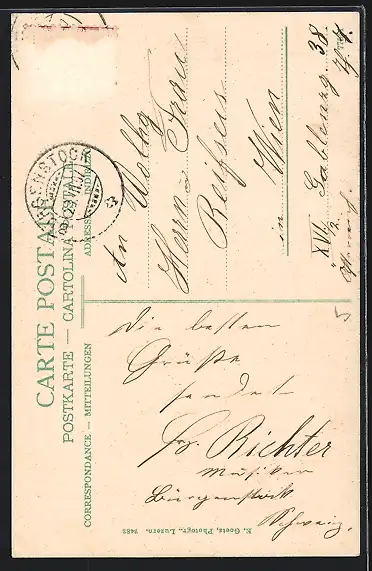 CARTE POSTALE
POSTKARTE — CARTOLINA POSTALE
CORRESPONDANCE — MITTEILUNGEN
ADRESSE — INDIRIZZO
BÜRGENSTOCK
An Wohlg
Herrn u Frau
Reifsers
in Wien
XVI/2 Gablenzg. 38
Die besten
Grüße
sendet
Fr. Richter
Musiker
Bürgenstock
Schweiz.
E. Goetz, Photogr., Luzern. 7483
5